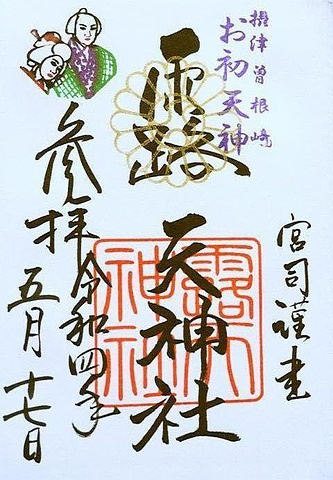 摂津曽根崎
お初天神
露
天神社
宮司謹書
参拝
令和四年
五月十七日
露天神社